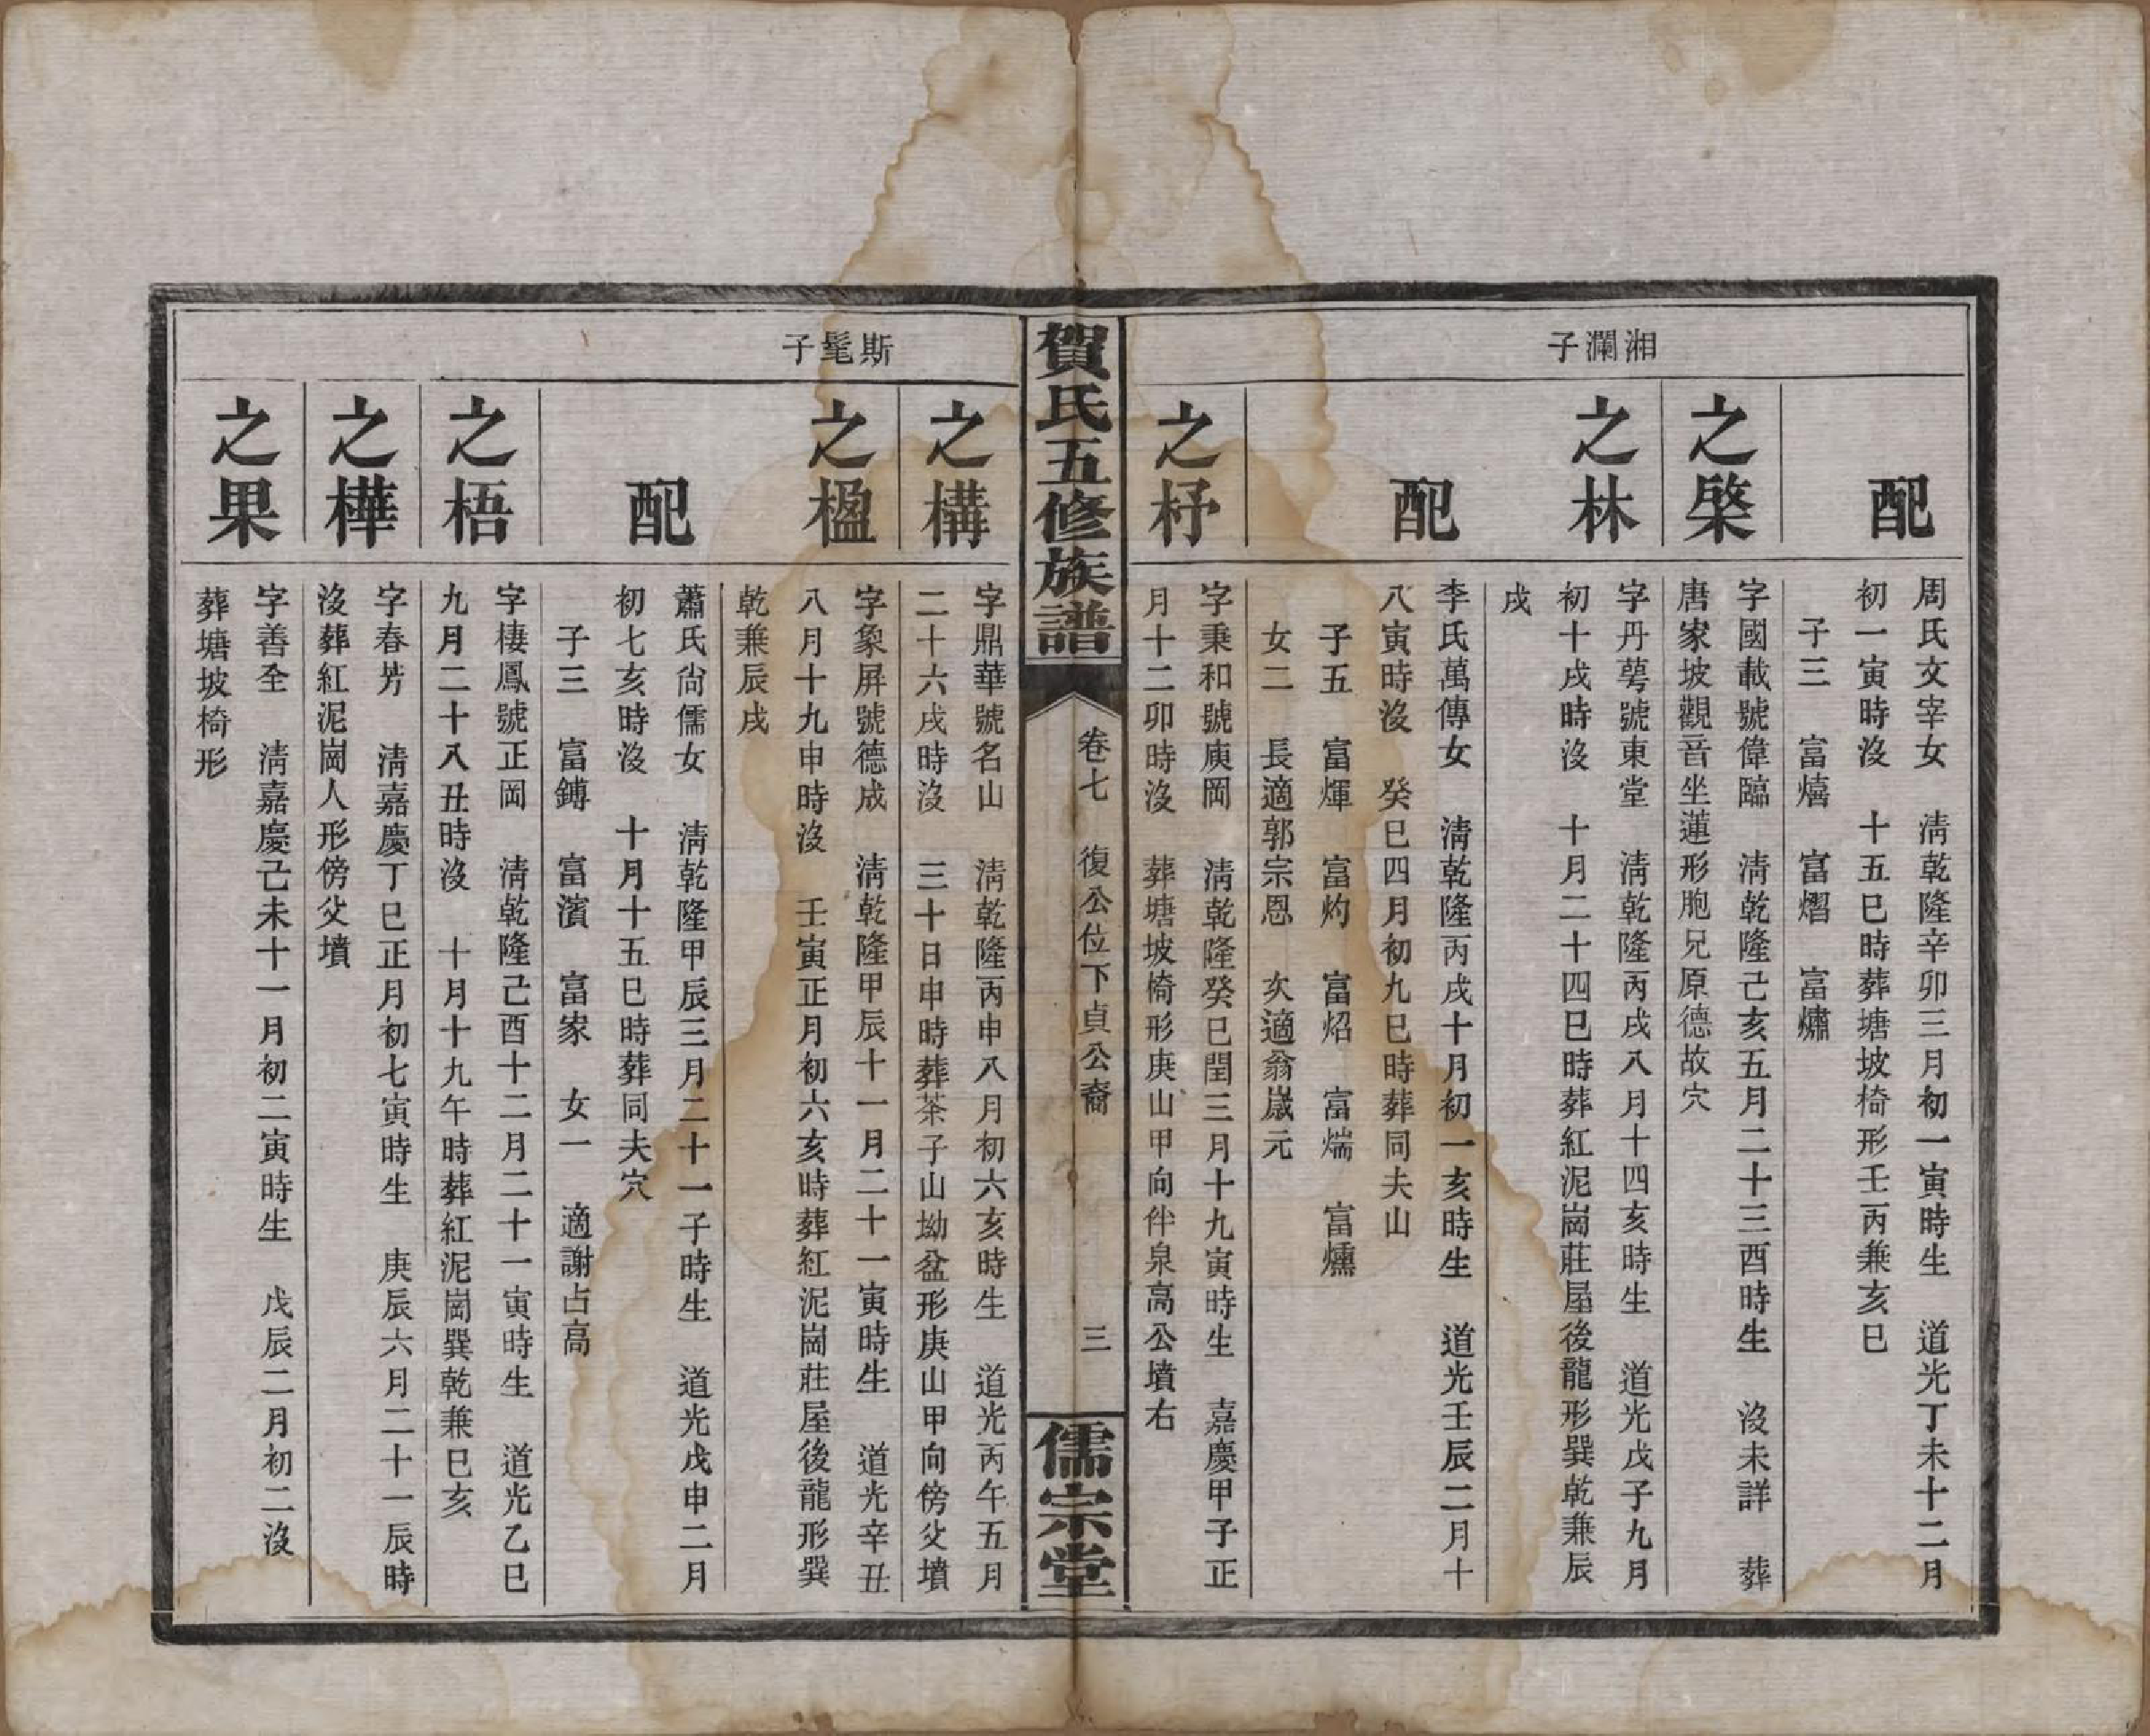 湘瀾子
配
周氏文宰女　清乾隆辛卯三月初一寅時生　道光丁未十二月
初一寅時沒　十五巳時葬塘坡椅形壬丙兼亥巳
子三　富熺　富熠　富爌
之棨
字國載號偉臨　清乾隆己亥五月二十三酉時生　沒未詳　葬
唐家坡觀音坐蓮形胞兄原德故穴
之林
字丹萼號東堂　清乾隆丙戌八月十四亥時生　道光戊子九月
初十戌時沒　十月二十四巳時葬紅泥崗莊屋後龍形巽乾兼辰
戌
配
李氏萬傳女　清乾隆丙戌十月初一亥時生　道光壬辰二月十
八寅時沒　癸巳四月初九巳時葬同夫山
子五　富煇　富灼　富炤　富煓　富燻
女二　長適郭宗恩　次適翁嵗元
之杼
字秉和號庚岡　清乾隆癸巳閏三月十九寅時生　嘉慶甲子正
月十二卯時沒　葬塘坡椅形庚山甲向伴泉高公墳右
賀氏五修族譜
卷七　復公位下貞公裔　三
儒宗堂
斯髦子
之構
字鼎華號名山　清乾隆丙申八月初六亥時生　道光丙午五月
二十六戌時沒　三十日申時葬茶子山坳盆形庚山甲向傍父墳
之楹
字象屏號德成　清乾隆甲辰十一月二十一寅時生　道光辛丑
八月十九申時沒　壬寅正月初六亥時葬紅泥崗莊屋後龍形巽
乾兼辰戌
配
蕭氏尙儒女　清乾隆甲辰三月二十一子時生　道光戊申二月
初七亥時沒　十月十五巳時葬同夫穴
子三　富鏄　富濱　富家　女一　適謝占高
之梧
字棲鳳號正岡　清乾隆己酉十二月二十一寅時生　道光乙巳
九月二十八丑時沒　十月十九午時葬紅泥崗巽乾兼巳亥
之樺
字春芳　清嘉慶丁巳正月初七寅時生　庚辰六月二十一辰時
沒葬紅泥崗人形傍父墳
之果
字善全　清嘉慶己未十一月初二寅時生　戊辰二月初二沒
葬塘坡椅形